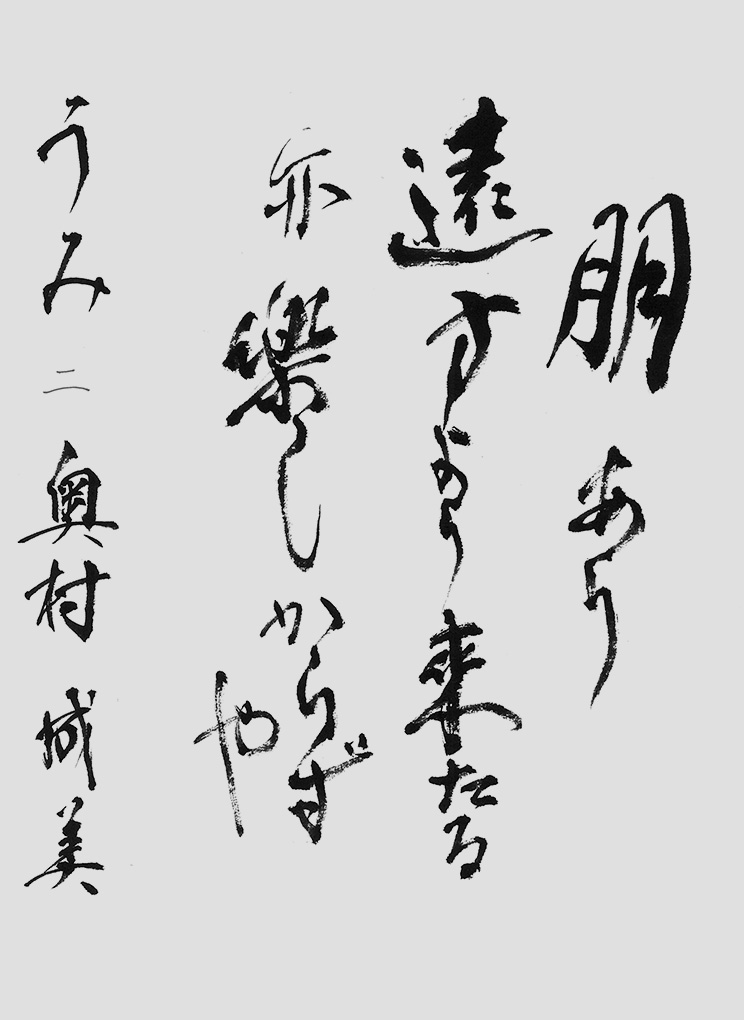 朋あり
遠方より来たる
亦楽しからず
や
うみ 二 奥村 城美